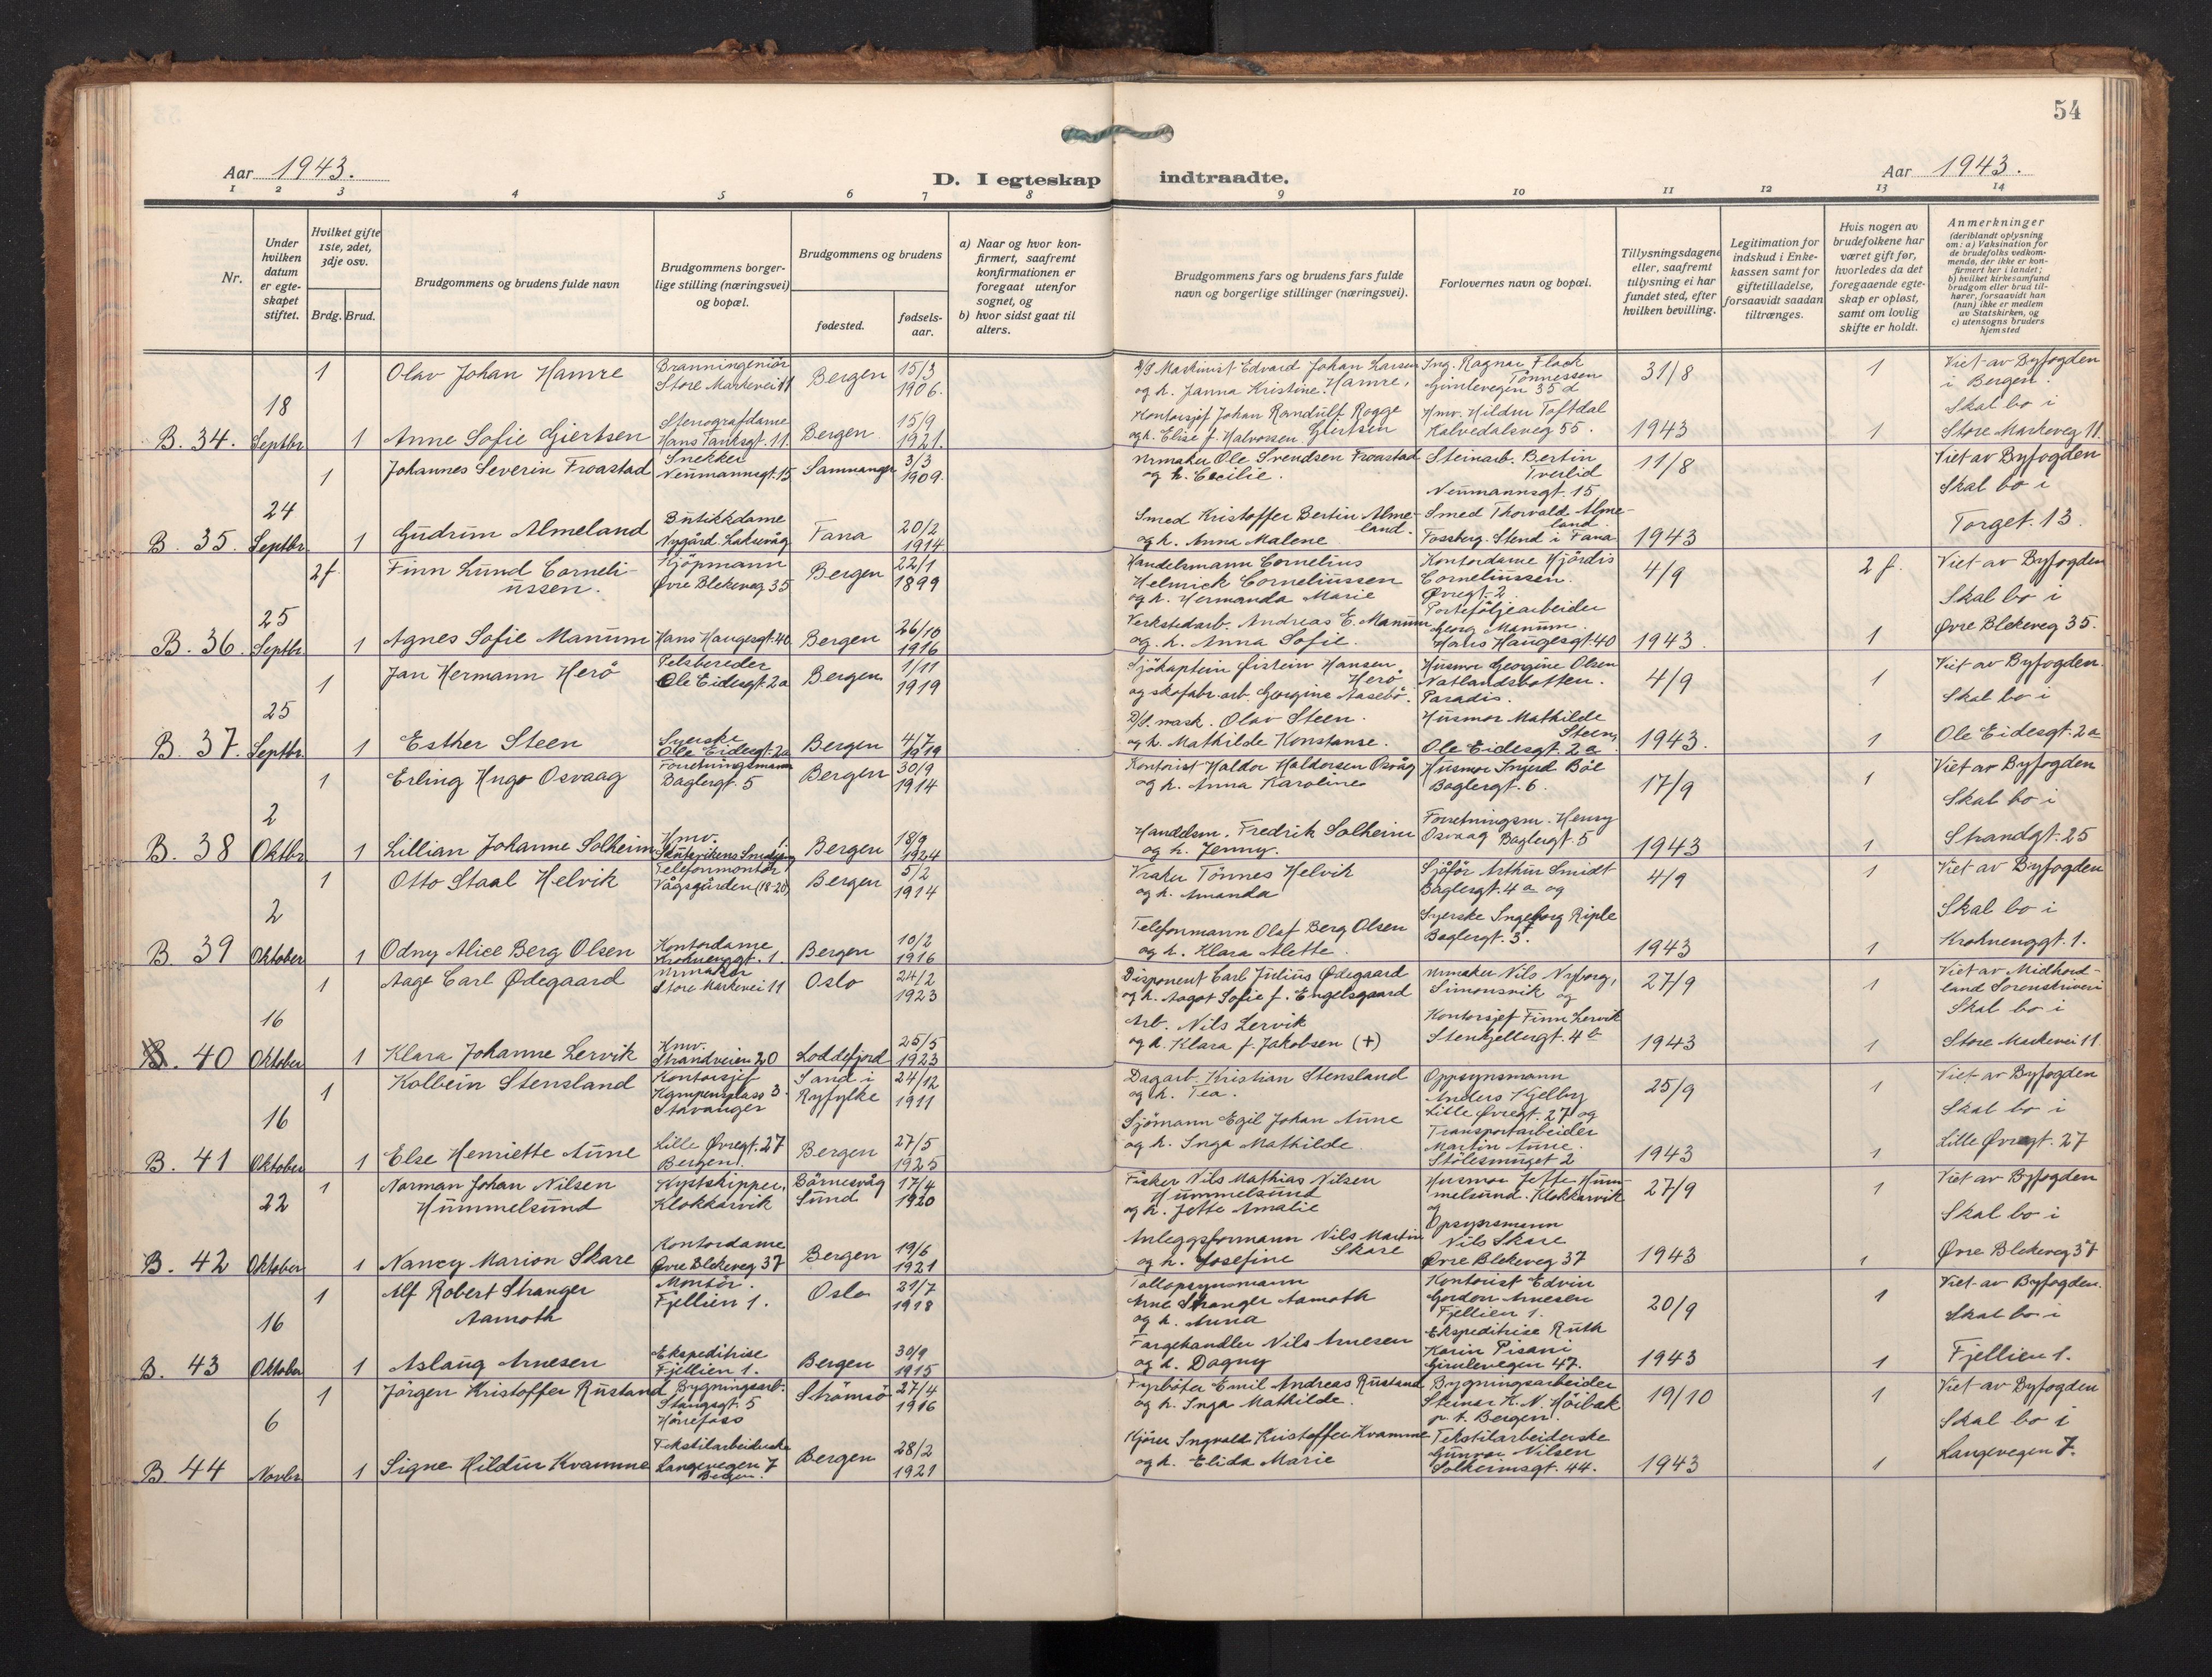 54
Aar 1943.
D. I egteskap indtraadte.
Aar 1943.
1 2 3 4 5 6 7 8 9 10 11 12 13 14
Nr.
Under hvilken datum er egteskapet stiftet.
Hvilket gifte 1ste, 2det, 3dje osv.
Brdg. Brud.
Brudgommens og brudens fulde navn
Brudgommens borgerlige stilling (næringsvei) og bopæl.
Brudgommens og brudens
fødested.
fødselsaar.
a) Naar og hvor konfirmert, saafremt konfirmationen er foregaat utenfor sognet, og
b) hvor sidst gaat til alters.
Brudgommens fars og brudens fars fulde navn og borgerlige stillinger (næringsvei).
Forlovernes navn og bopæl.
Tillysningsdagene eller, saafremt tillysning ei har fundet sted, efter hvilken bevilling.
Legitimation for indskud i Enkekassen samt for giftetilladelse, forsaavidt saadan tiltrænges.
Hvis nogen av brudefolkene har været gift før, hvorledes da det foregaaende egteskap er opløst, samt om lovlig skifte er holdt.
Anmerkninger
(deriblandt oplysning om: a) Vaksination for de brudefolks vedkommende, der ikke er konfirmert her i landet; b) hvilket kirkesamfund brudgom eller brud tilhører, forsaavidt han (hun) ikke er medlem av Statskirken, og c) utensogns bruders hjemsted
1 Olav Johan Hamre Branningeniør Store Markevei 11 Bergen 15/3 1906. D/S Maskinist Edvard Johan Larsen og h. Janna Kristine Hamre, Ing. Ragnar Flack Tønnessen 35 d 31/8 1 Viet av Byfogden i Bergen.
B. 34. 18 Septbr. 1 Anne Sofie Giertsen Stenografdame Hans Tanksgt. 11. Bergen 15/9 1921. Kontorsjef Johan Randulf Rogge Giertsen og h. Elise f. Halvorsen Hmv. Hildur Toftdal Kalvedalsveg 55. 1943 1 Skal bo i Store Markeveg 11.
1 Johannes Severin Froastad Snekker Neumannsgt. 15 Samnanger 3/3 1909. Urmaker Ole Svendsen Froastad og h. Cecilie. Steinarb. Bertin Tverlid Neumannsgt. 15 11/8 Viet av Byfogden
B. 35. 24 Septbr. 1 Gudrun Almeland Butikkdame Nygård. Laksevåg Fana 20/2 1914 Smed Kristoffer Bertin Almeland. og h. Anna Malene Smed Thorvald Almeland. Fossberg. Stend i Fana 1943 Skal bo i Torget. 13.
2 f. Finn Lund Corneliussen. Kjøpmann Øvre Blekeveg 35 Bergen 22/1 1899 Handelsmann Cornelius Helmick Corneliussen og h. Hermanda Marie Kontordame Hjördis Corneliussen. Øvregt. 2 4/9 2 f. Viet av Byfogden
B. 36. 25 Septbr. 1 Agnes Sofie Manum Hans Haugesgt. 40 Bergen 26/10 1916 Verkstedarb. Andreas E. Manum og h. Anna Sofie. Porteføljearbeider Georg Manum. Hans Haugesgt. 40 1943. 1 Skal bo i Øvre Blekeveg 35.
1 Jan Hermann Herö Pelsbereder Ole Eidesgt. 2a Bergen 1/11 1919 Sjökaptein Øistein Hansen Herö og skofabr.arb. Georgine Aasebö. Husmor Georgine Olsen Natlandsbotten. Paradis. 4/9 1 Viet av Byfogden.
B. 37. 25 Septbr. 1 Esther Steen Syerske Ole Eidesgt. 2a Bergen 4/7 1919 D/S. mask. Olav Steen. og h. Mathilde Konstanse. Husmor Mathilde Steen, Ole Eidesgt. 2a 1943. 1 Skal bo i Ole Eidesgt. 2a
1 Erling Hugo Osvaag Forretningsmann Baglergt. 5 Bergen 30/9 1914 Kontorist Haldor Haldorsen Osvåg og h. Anna Karoline Husmor Ingerd Böe Baglergt. 6. 17/9 1 Viet av Byfogden
B. 38 2 Oktbr. 1 Lillian Johanne Solheim Hmv. Bergen 18/9 1924 Handelsm. Fredrik Solheim og h. Jenny. Forretningsm. Henry Osvaag Baglergt. 5 1943 1 Skal bo i Strandgt. 25
1 Otto Staal Helvik Telefonmontör Vågsgården (18-20) Bergen 5/2 1914 Vraker Tönnes Helvik og h. Amanda Sjåför Arthur Smidt Baglergt. 4a og 4/9 Viet av Byfogden
B. 39 2 Oktober 1 Odny Alice Berg Olsen Kontordame Krohnenggt. 1. Bergen 10/2 1916 Telefonmann Olaf Berg Olsen og h. Klara Alette. Syerske Ingeborg Riple Baglergt. 3. 1943 1 Skal bo i Krohnenggt. 1.
1 Aage Carl Ødegaard Urmaker Store Markevei 11 Oslo 24/2 1923 Disponent Carl Julius Ødegaard og h. Aagot Sofie f. Engelsgaard Urmaker Nils Nyborg, Simonsvik og 27/9 1 Viet av Midhordland Sorenskriveri
B. 40 16 Oktober 1 Klara Johanne Lervik Hmv. Strandveien 20 Loddefjord 25/5 1923 Arb. Nils Lervik og h. Klara f. Jakobsen (+) Kontorsjef Finn Lervik Stenkjellergt. 4b 1943 1 Skal bo i Store Markevei 11.
1 Kolbein Stensland Kontorsjef Kampensplass 3. Stavanger Sand i Ryfylke 24/12 1911 Dagarb. Kristian Stensland og h. Tea. Oppsynsmann Anders Kjelby Lille Øvregt. 27 og 25/9 1 Viet av Byfogden
B. 41 16 Oktober 1 Else Henriette Aune Lille Øvregt. 27 Bergen. Bergen 27/5 1925 Sjömann Egil Johan Aune og h. Inga Mathilde. Transportarbeider Martin Aune. Stölesmuget 2 1943 1 Skal bo i Lille Øvregt. 27
1 Norman Johan Nilsen Hummelsund Kystskipper, Klokkarvik Sund 17/4 1920 Fisker Nils Mathias Nilsen Hummelsund og h. Jette Amalie Husmor Jette Hummelsund. Klokkarvik og 27/9 1 Viet av Byfogden
B. 42 22 Oktober 1 Nancy Marion Skare Kontordame Øvre Blekeveg 37 Bergen 19/6 1921 Anleggsformann Nils Martin Skare og h. Josefine Opsynsmann Nils Skare Øvre Blekeveg 37 1943 1 Skal bo i Øvre Blekeveg 37
1 Alf Robert Stranger Aamoth Montör. Fjellien 1. Oslo 21/7 1918 Tollopsynsmann Arne Stranger Aamoth og h. Anna Kontorist Edvin Gordon Arnesen Fjellien 1. 20/9 1 Viet av Byfogden.
B. 43 16 Oktober 1 Aslaug Arnesen Ekspeditrise Fjellien 1. Bergen 30/9 1915 Fargehandler Nils Arnesen og h. Dagny Ekspeditrise Ruth Karin Pisani 47. 1943 1 Skal bo i Fjellien 1.
1 Jörgen Kristoffer Rustand Bygningsarb. Stangsgt. 5 Hönefoss Strömsö 27/4 1916 Fyrböter Emil Andreas Rustand og h. Inga Mathilde. Bygningsarbeider Steinar K. N. Höibak p. t. Bergen. 19/10 1 Viet av Byfogden
B 44 6 Novbr. 1 Signe Hildur Kvamme Tekstilarbeiderske Langevegen 7 Bergen. Bergen 28/2 1921 Kjörer Ingvald Kristoffer Kvamme og h. Elida Marie Tekstilarbeiderske Gunvor Nilsen Solheimsgt. 44. 1943 1 Skal bo i Langevegen 7.